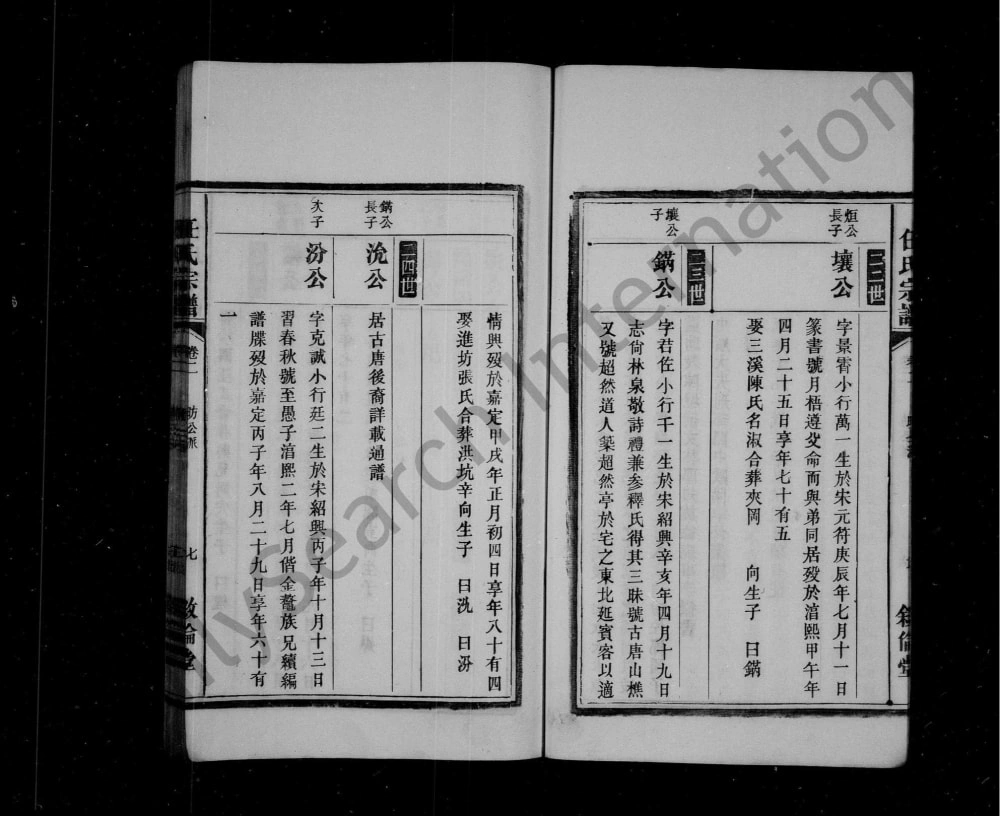 任氏宗譜
敘倫堂
二二世
烜公
長子
壤公
字景霄小行萬一生於宋元符庚辰年七月十一日
篆書號月梧遵父命而與弟同居歿於淳熙甲午年
四月二十五日享年七十有五
娶三溪陳氏名淑合葬夾岡　向生子　曰鏋
二三世
壤公
子
鏋公
字君佐小行千一生於宋紹興辛亥年四月十九日
志尙林泉敬詩禮兼參釋氏得其三昧號古唐山樵
又號超然道人築超然亭於宅之東北延賓客以適
情興歿於嘉定甲戌年正月初四日享年八十有四
娶進坊張氏合葬洪坑辛向生子　曰　　曰汾
二四世
鏋公
長子
居古唐後裔詳載通譜
次子
汾公
字克誠小行廷二生於宋紹興丙子年十月十三日
習春秋號至愚子淳熙二年七月偕金鼇族兄續編
譜牒歿於嘉定丙子年八月二十九日享年六十有
一
任氏宗譜
卷二
公派
七
敘倫堂
International